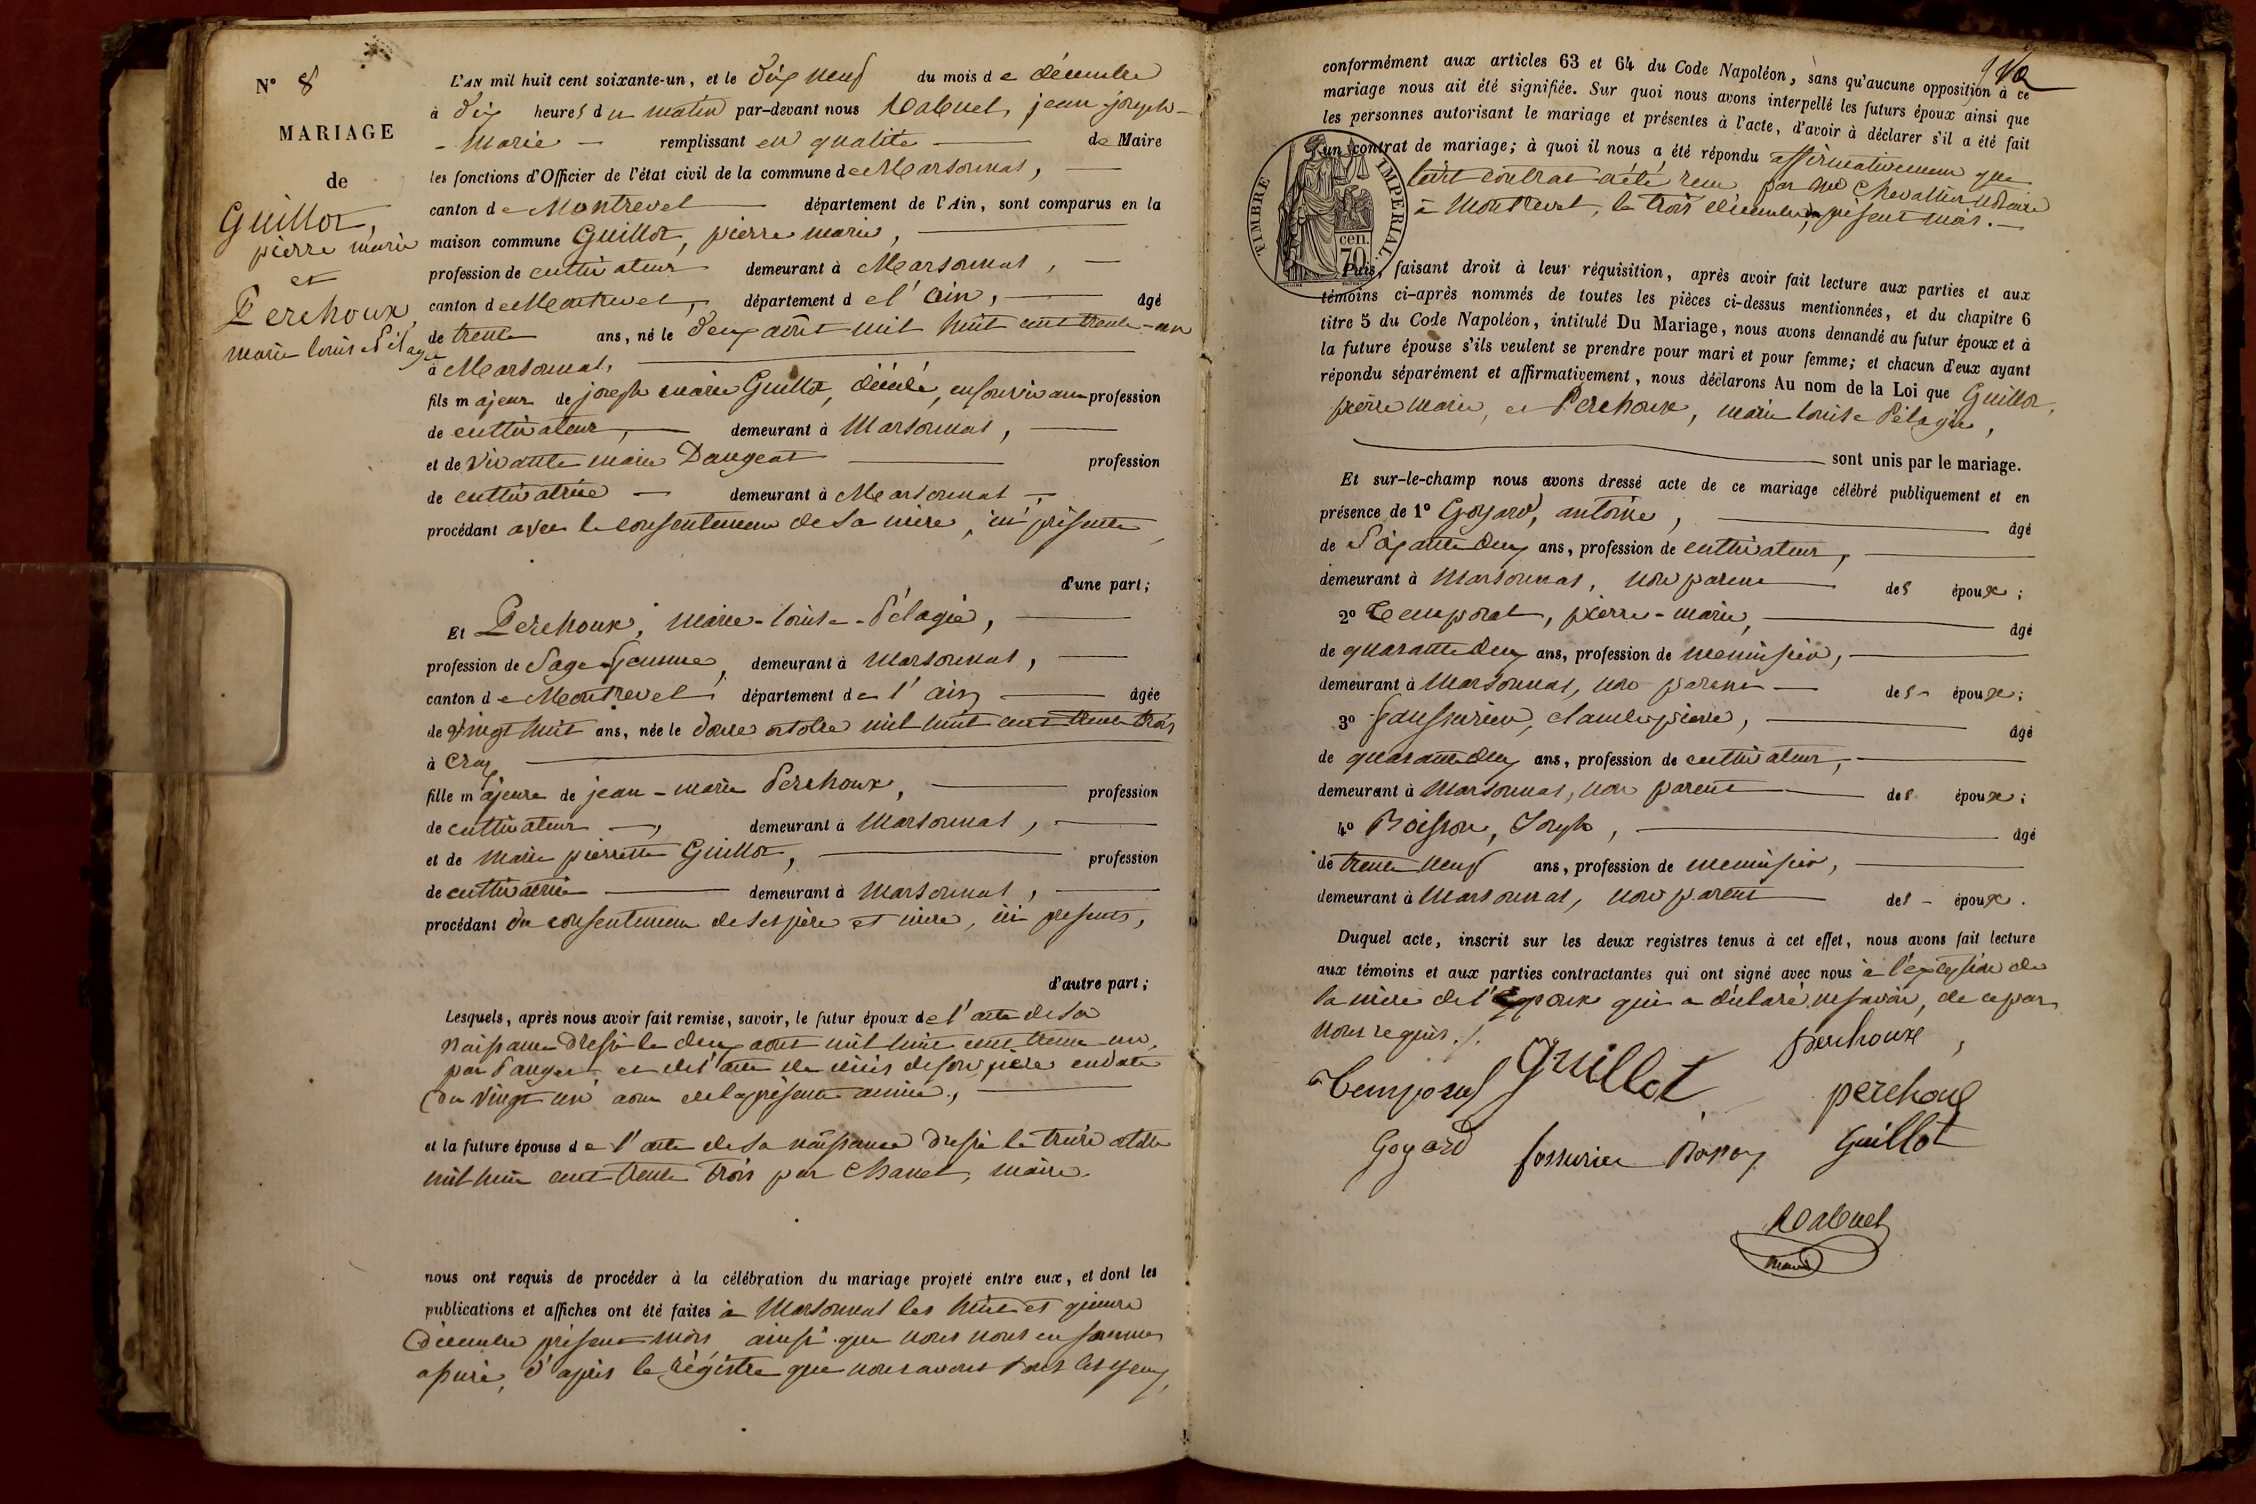 N° 8
MARIAGE
de
Guillot,
pierre marie
et
Perchoux
marie louise Pélagie
L'AN mil huit cent soixante-un, et le dix neuf du mois de décembre
à dix heures du matin par-devant nous Rabuel, jean joseph-
- Marie - remplissant en qualité de Maire
les fonctions d'Officier de l'état civil de la commune de Marsonnas,
canton de Montrevel département de l'Ain, sont comparus en la
maison commune Guillot, pierre marie,
profession de cultivateur demeurant à Marsonnas,
canton de Montrevel, département de l'ain, âgé
de trente ans, né le deux août mil huit cent trente-un
à Marsonnas,
fils majeur de joseph marie Guillot, décédé, en son vivant profession
de cultivateur, demeurant à Marsonnas,
et de vivante marie Dangeat profession
de cultivatrice demeurant à Marsonnas,
procédant avec le consentement de sa mère, ici présente,
d'une part;
Et Perchoux, Marie-louise-Pélagie,
profession de Sage-femme, demeurant à Marsonnas,
canton de Montrevel, département de l'ain âgée
de vingt huit ans, née le douze octobre mil huit cent trente trois
à Cras
fille majeure de jean-marie Perchoux, profession
de cultivateur, demeurant à Marsonnas,
et de marie pierrette Guillot, profession
de cultivatrice demeurant à Marsonnas,
procédant du consentement de ses père et mère, ici présents,
d'autre part;
Lesquels, après nous avoir fait remise, savoir, le futur époux de l'acte de sa
naissance dressé le deux août mil huit cent trente un,
par et de l'acte de décès de son père en date
du vingt un août de la présente année,
et la future épouse de l'acte de sa naissance dressé le treize octobre
mil huit cent trente trois par Chanel, maire.
nous ont requis de procéder à la célébration du mariage projeté entre eux, et dont les
publications et affiches ont été faites à Marsonnas les huit et quinze
décembre présent mois, ainsi que nous nous en sommes
assuré, d'après le régistre que nous avons sous les yeux,
conformément aux articles 63 et 64 du Code Napoléon, sans qu'aucune opposition à ce
mariage nous ait été signifiée. Sur quoi nous avons interpellé les futurs époux ainsi que
les personnes autorisant le mariage et présentes à l'acte, d'avoir à déclarer s'il a été fait
un contrat de mariage; à quoi il nous a été répondu affirmativement que
ledit contrat a été reçu par Me Chevallier Notaire
à Montrevel, le trois décembre, présent mois.
TIMBRE IMPERIAL
cen.
70
Puis, faisant droit à leur réquisition, après avoir fait lecture aux parties et aux
témoins ci-après nommés de toutes les pièces ci-dessus mentionnées, et du chapitre 6
titre 5 du Code Napoléon, intitulé Du Mariage, nous avons demandé au futur époux et à
la future épouse s'ils veulent se prendre pour mari et pour femme; et chacun d'eux ayant
répondu séparément et affirmativement, nous déclarons Au nom de la Loi que Guillot,
pierre marie, et Perchoux, marie louise Pélagie,
sont unis par le mariage.
Et sur-le-champ nous avons dressé acte de ce mariage célébré publiquement et en
présence de 1° Goyard, antoine, âgé
de soixante deux ans, profession de cultivateur,
demeurant à Marsonnas, non parent des époux;
2° Temporal, pierre-marie, âgé
de quarante deux ans, profession de menuisier,
demeurant à Marsonnas, non parent des époux;
3° claude pierre, âgé
de quarante deux ans, profession de cultivateur,
demeurant à Marsonnas, non parent des époux;
4° Boisson, Joseph, âgé
de trente neuf ans, profession de menuisier,
demeurant à Marsonnas, non parent des époux.
Duquel acte, inscrit sur les deux registres tenus à cet effet, nous avons fait lecture
aux témoins et aux parties contractantes qui ont signé avec nous à l'exception de
la mère de l'Epoux qui a déclaré ne savoir, de ce par
Nous requis ./.
perhoux
Guillot
Temporal
perchoux
Goyard
fossurier
Guillot
Rabuel
maire